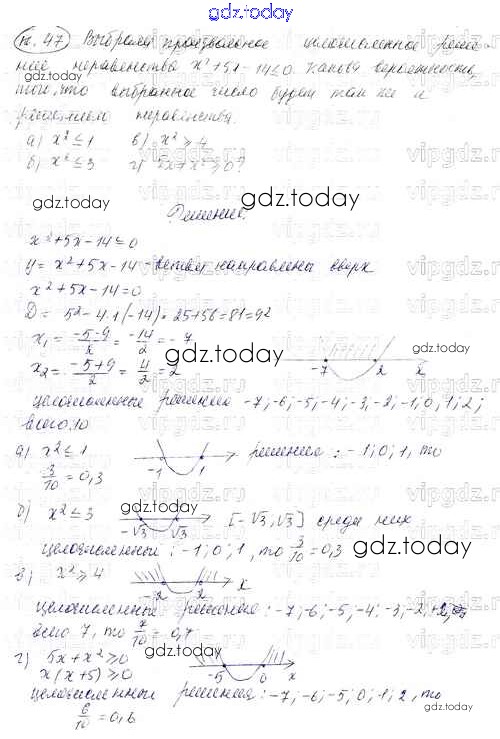 gdz.today
gdz.today
n. 47) Выбрали произвольное целочисленное реше-
ние неравенства x²+5x-14≤0. Какова вероятность,
того, что выбранное число будет так же и
решением неравенства.
а) x²≤1 в) x²≥4
б) x²≤3 г) 5x+x²≥0?
gdz.today
gdz.today
Решение.
x²+5x-14≤0
y = x²+5x-14 - ветви направлены вверх
x²+5x-14=0
D = 5²-4·1·(-14) = 25+56=81=9²
x₁ = -5-9/2 = -14/2 = -7
x₂ = -5+9/2 = 4/2 = 2
gdz.today
gdz.today
-7 2 x
целочисленные решения -7;-6;-5;-4;-3;-2;-1;0;1;2;
всего 10
а) x²≤1 -1 1 решения: -1;0;1, то
3/10 = 0,3
gdz.today
б) x²≤3 -√3 √3 [-√3;√3] среди них
целочисленной: -1;0;1, то 3/10 = 0,3
gdz.today
gdz.today
в) x²≥4 2 2 x
целочисленные решения: -7;-6;-5;-4;-3;-2;+2;
всего 7, то 7/10 = 0,7
г) 5x+x²≥0
x(x+5)≥0
-5 0 x
gdz.today
целочисленный решения: -7;-6;-5;0;1;2, то
6/10 = 0,6
gdz.today